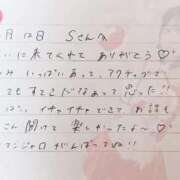 月12日 Sさん
いに来てくれて ありがとう♡
み いっぱいあって、アクティブで
ても すてきだなぁと 思った!!
ば、イチャイチャできて お話も
こん 聞けて 楽しかったよ〜♡
マンジャロ がんばってね!!